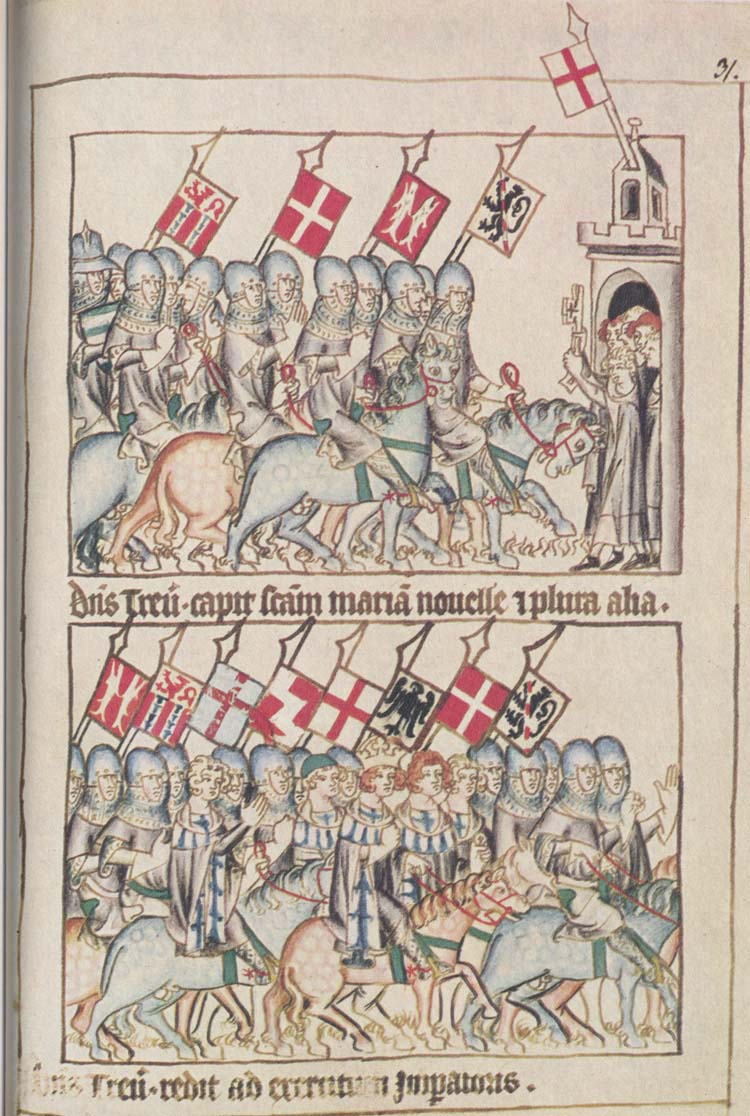 31.
Dn̄s Treū · capit scām mariā nouelle ⁊ plura alia ·
Treū · redit ad exercitum Imperatoris ·